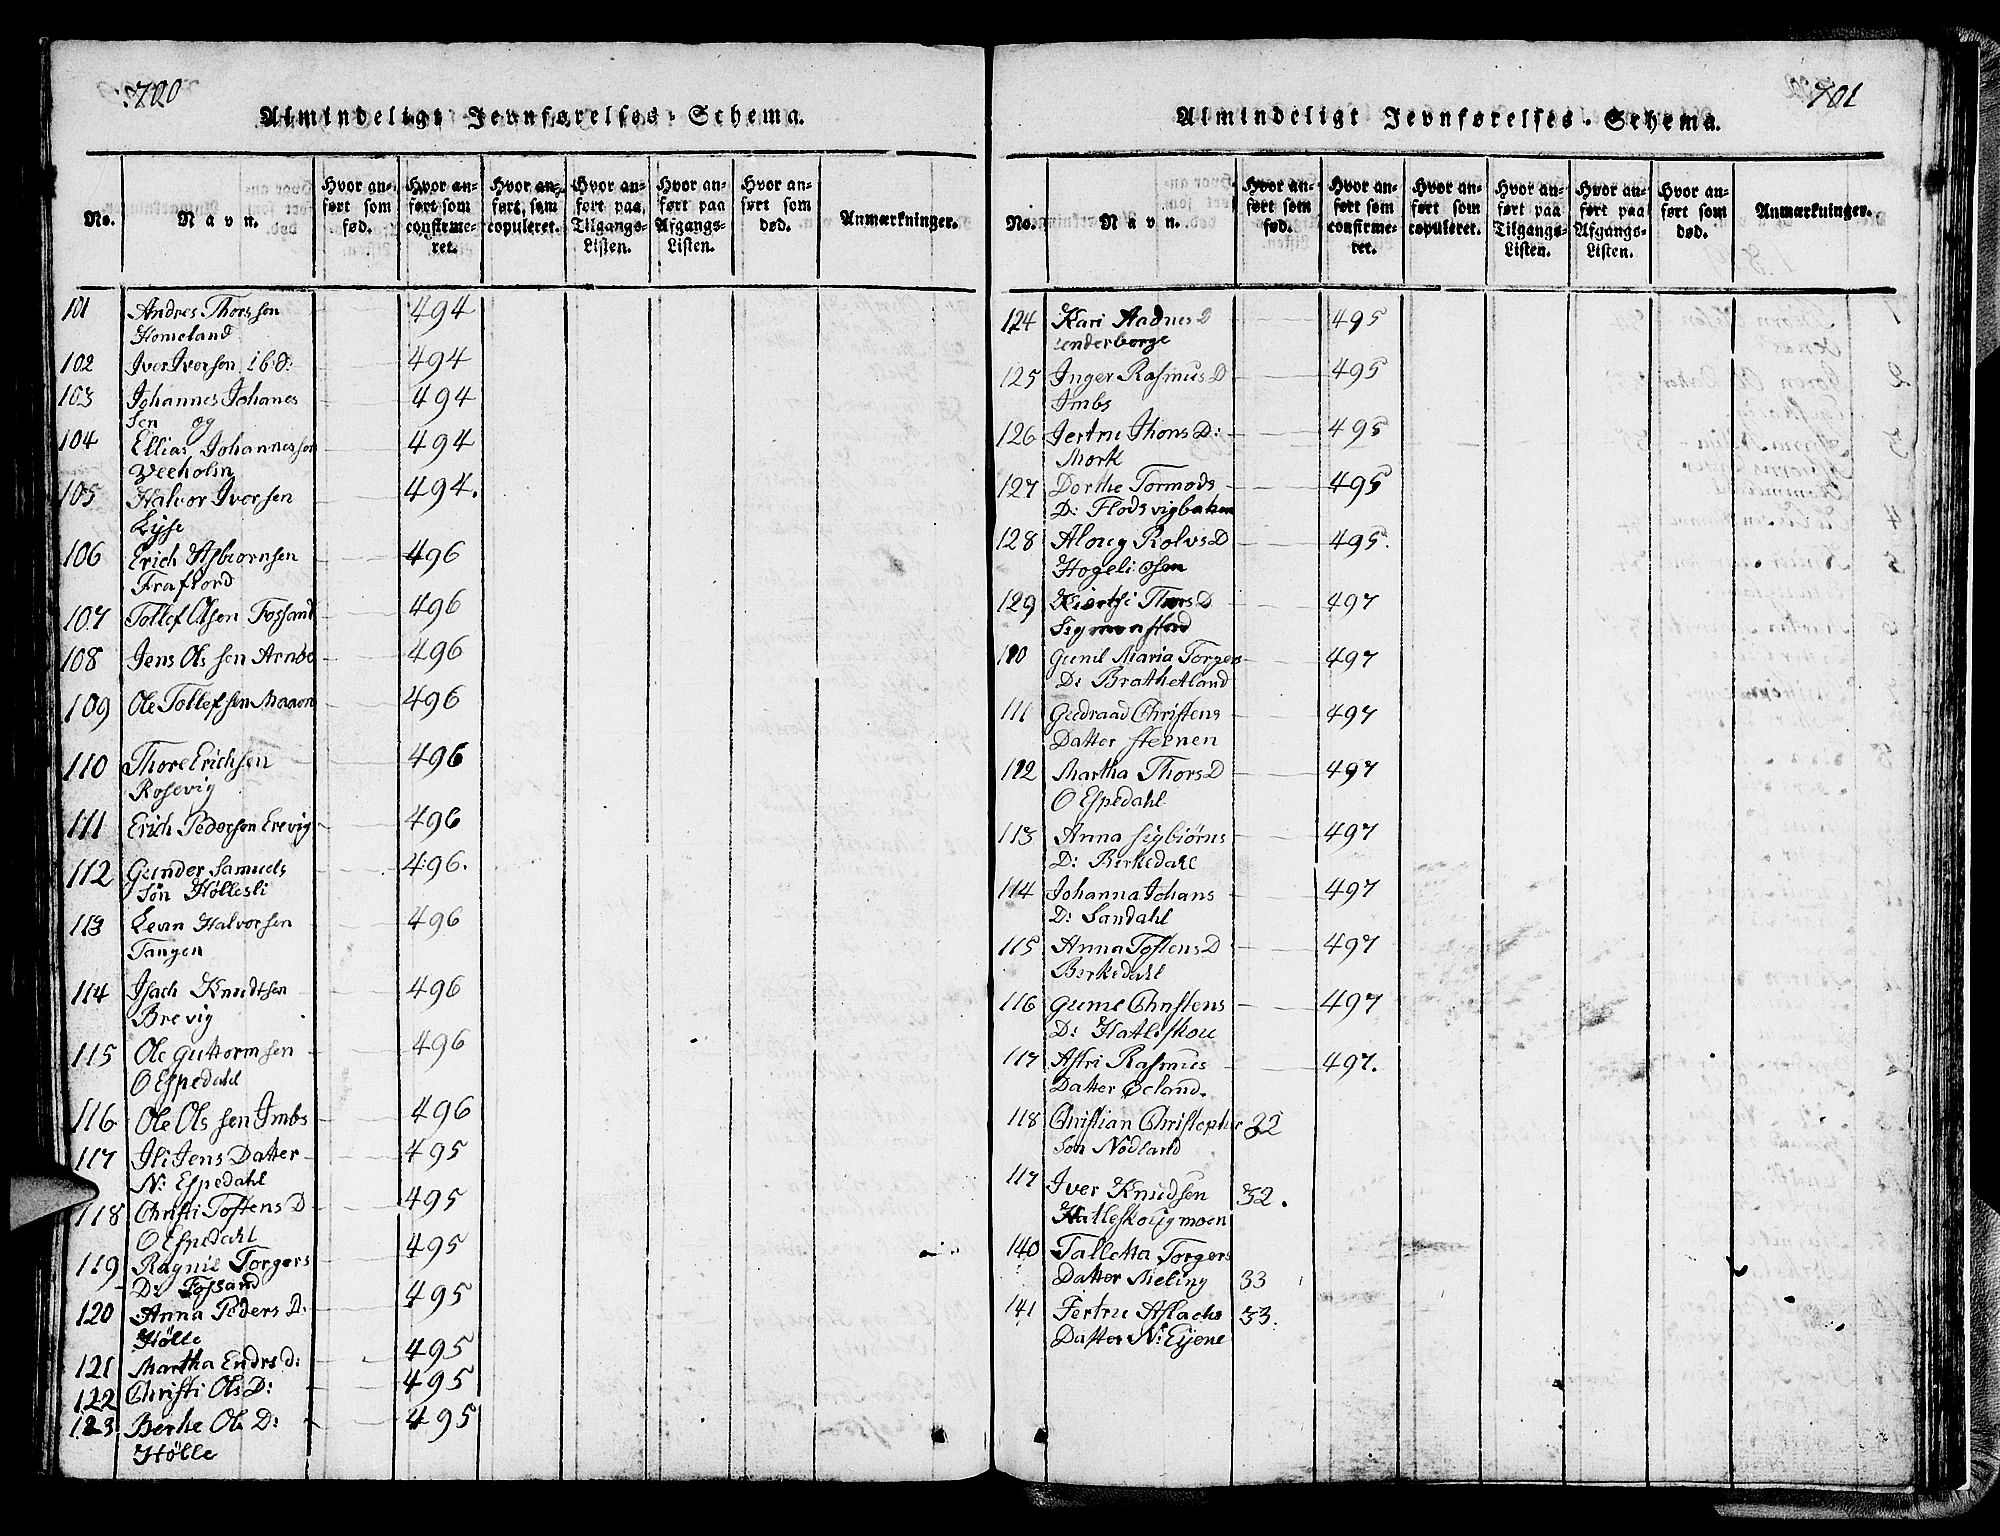 700
Almindeligt Jevnførelses-Schema.
No.
Navn.
Hvor anført som fød.
Hvor anført som confirmeret.
Hvor anført som copuleret.
Hvor anført paa Tilgangs-Listen.
Hvor anført paa Afgangs-Listen.
Hvor anført som død.
Anmærkninger.
101 Andres Thorssen 494
Homeland
102 Iver Iversen ibd: 494
103 Johannes Johanes 494
sen og
104 Ellias Johannessen 494
Veeholm
105 Halvor Iversen 494.
Lyse
106 Erich Asbiornsen 496
Frafiord
107 Tollef Olsen Fossand 496
108 Jens Olssen Arnöe 496
109 Ole Tollefsen Maaon 496
110 Thore Erichsen 496
Rosevig
111 Erich Pedersen Erevig 496
112 Gunder Samuels 496.
søn Höllesli
113 Levin Halvorsen 496
Tangen
114 Isach Knudtsen 496
Brevig
115 Ole Guttormsen 496
O Espedahl
116 Ole Olssen Imbs 496
117 Ili Jens Datter 495
N: Espedahl
118 Christi Tostens D 495
O Espedahl
119 Ragnil Torgers 495
D: Fossand
120 Anna Peders D: 495
Hölle
121 Martha Endrs D: 495
122 Christi Ols D: 495
123 Berthe Ols D: 495
Hölle
701
Almindeligt Jevnførelses-Schema.
No.
Navn.
Hvor anført som fød.
Hvor anført som confirmeret.
Hvor anført som copuleret.
Hvor anført paa Tilgangs-Listen.
Hvor anført paa Afgangs-Listen.
Hvor anført som død.
Anmærkninger.
124 Kari Aadnes D 495
enderberge
125 Inger Rasmus D 495
Imbs
126 Jertru Thons D: 495
Mork
127 Dorthe Tormods 495
D: Flodsvigbaken
128 Aloug Rolvs D 495.
Hogeli osen
129 Kiersti Thors D 497
Sigmonstad
110 Gunil Maria Torgers 497
D: Brathetland
111 Gudraad Christens 497
Datter Steenen
112 Martha Thors D 497
O Espedahl
113 Anna Sigbiørns 497
D: Berkedahl
114 Johanna Johans 497
D: Sandahl
115 Anna Tostens D 497
Berkedahl
116 Gunil Christens 497
D: Hatleskou
117 Astri Rasmus 497.
Datter Øeland.
118 Christian Christopher 32
søn Nødland
117 Iver Knudsen 32.
Hatleskougmoen
140 Talletta Torgers
Datter Meling 33
141 Jertru Aslachs 33.
Datter N: Eyene